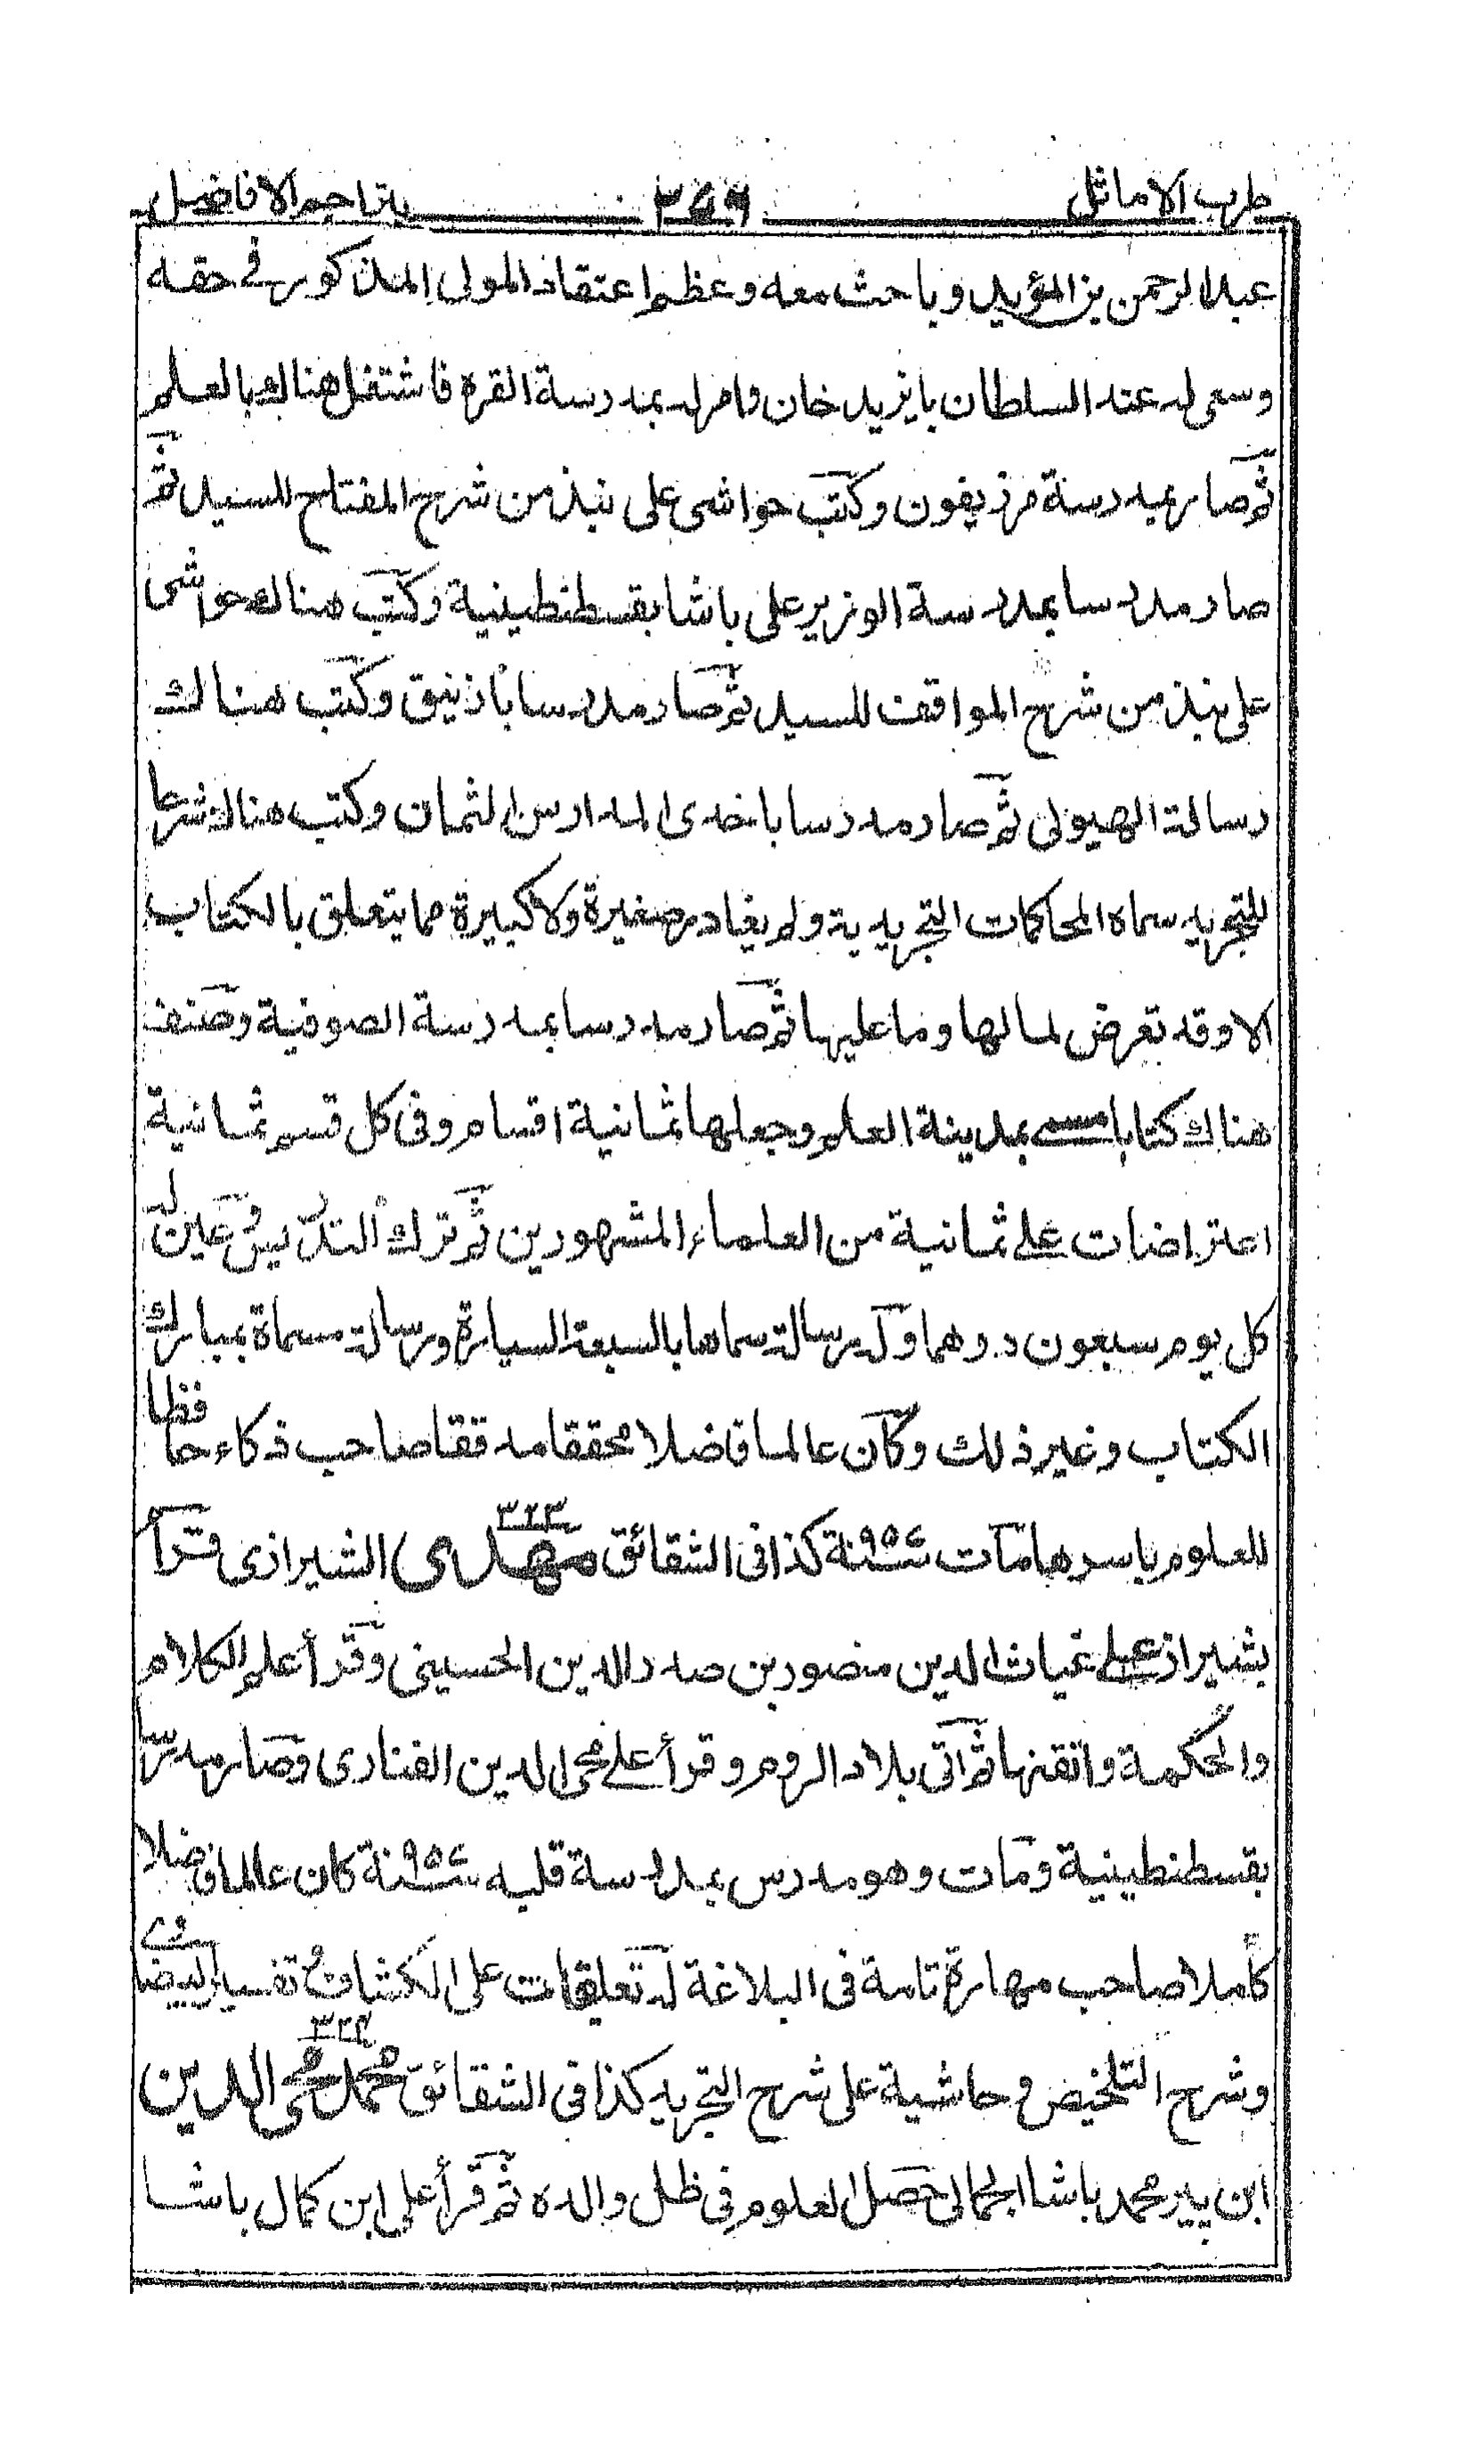 طرب الاماثل ٣٤٦ بتراجم الافاضيل
عبد الرحمن بن المؤيد وباحث معه وعظم اعتقاد المولى المذكور في حقه
وسعى له عند السلطان بايزيد خان وامر له بمدرسة القره فاشتغل هناك بالعلم
ثم صار بمدرسة مرزيفون وكتب حواشى على نبذ من شرح المفتاح للسيد ثم
صار مدرسا بمدرسة الوزير على باشا بقسطنطينية وكتب هناك حواشى
على نبذ من شرح المواقف للسيد ثم صار مدرسا بازنيق وكتب هناك
رسالة الهيولى ثم صار مدرسا باحدى المدارس الثمان وكتب هناك شرحا
للتجريد سماه المحاكمات التجريدية ولم يغادر صغيرة ولا كبيرة مما يتعلق بالكتاب
الا وقد تعرض لما لها وما عليها ثم صار مدرسا بمدرسة الصوفية وصنف
هناك كتابا مسمى بمدينة العلم وجعلها ثمانية اقسام وفى كل قسم ثمانية
اعتراضات على ثمانية من العلماء المشهورين ثم ترك التدريس وعين له
كل يوم سبعون درهما وله رسالة سماها بالسبعة السيارة ورسالة مسماة بمبارك
الكتاب وغير ذلك وكان عالما فاضلا محققا مدققا صاحب ذكاء حافظا
للعلوم باسرها مات سنة ٩٥٤ كذا فى الشقائق ٣٢٣ مهدى الشيرازى قرأ
بشيراز على غياث الدين منصور بن صدر الدين الحسينى وقرأ علم الكلام
والحكمة واتقنها ثم اتى بلاد الروم وقرأ على محى الدين الفنارى وصار مدرسا
بقسطنطينية ومات وهو مدرس بمدرسة قلبه سنة ٩٥٤ كان عالما فاضلا
كاملا صاحب مهارة تامة فى البلاغة له تعليقات على الكشاف وتفسير البيضاوى
وشرح التلخيص وحاشية على شرح التجريد كذا فى الشقائق ٣٢٤ محمد محى الدين
ابن بير محمد باشا الجمالى حصل العلوم فى ظل والده ثم قرأ على ابن كمال باشا